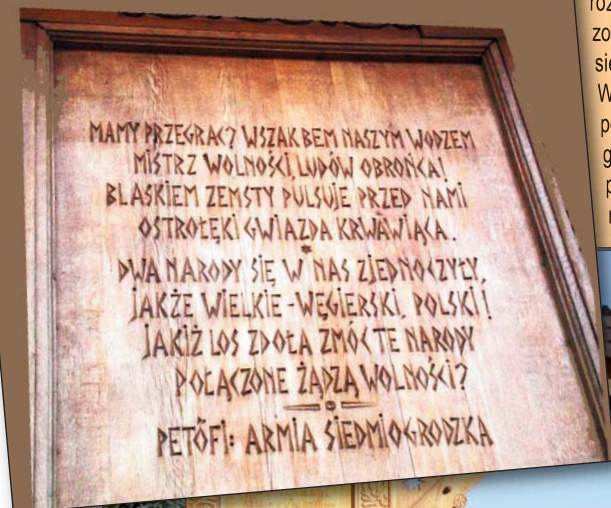 MAMY PRZEGRAĆ? WSZAK BEM NASZYM WODZEM
MISTRZ WOLNOŚCI, LUDÓW OBROŃCA!
BLASKIEM ZEMSTY PULSUJE PRZED NAMI
OSTROŁĘKI GWIAZDA KRWAWIĄCA.
*
DWA NARODY SIĘ W NAS ZJEDNOCZYŁY,
JAKŻE WIELKIE - WĘGIERSKI, POLSKI!
JAKIŻ LOS ZDOŁA ZMÓC TE NARODY
POŁĄCZONE ŻĄDZĄ WOLNOŚCI?
PETŐFI: ARMIA SIEDMIOGRODZKA